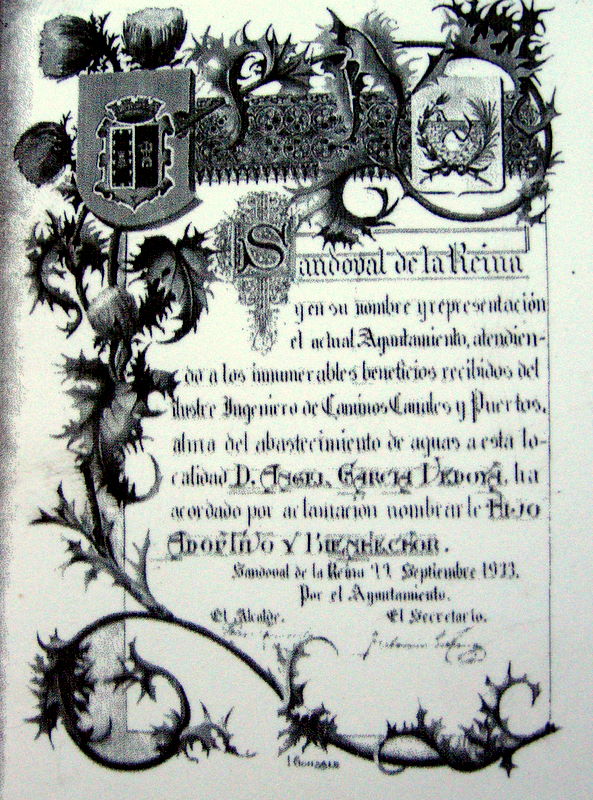 Sandoval de la Reina
y en su nombre y representación
el actual Ayuntamiento, atendien-
do a los innumerables beneficios recibidos del
ilustre Ingeniero de Caminos Canales y Puertos,
alma del abastecimiento de aguas a esta lo-
calidad D. ANGEL GARCIA VEDOYA, ha
acordado por aclamación nombrarle HIJO
ADOPTIVO Y BIENHECHOR.
Sandoval de la Reina 11 Septiembre 1933.
Por el Ayuntamiento.
El Alcalde. El Secretario.